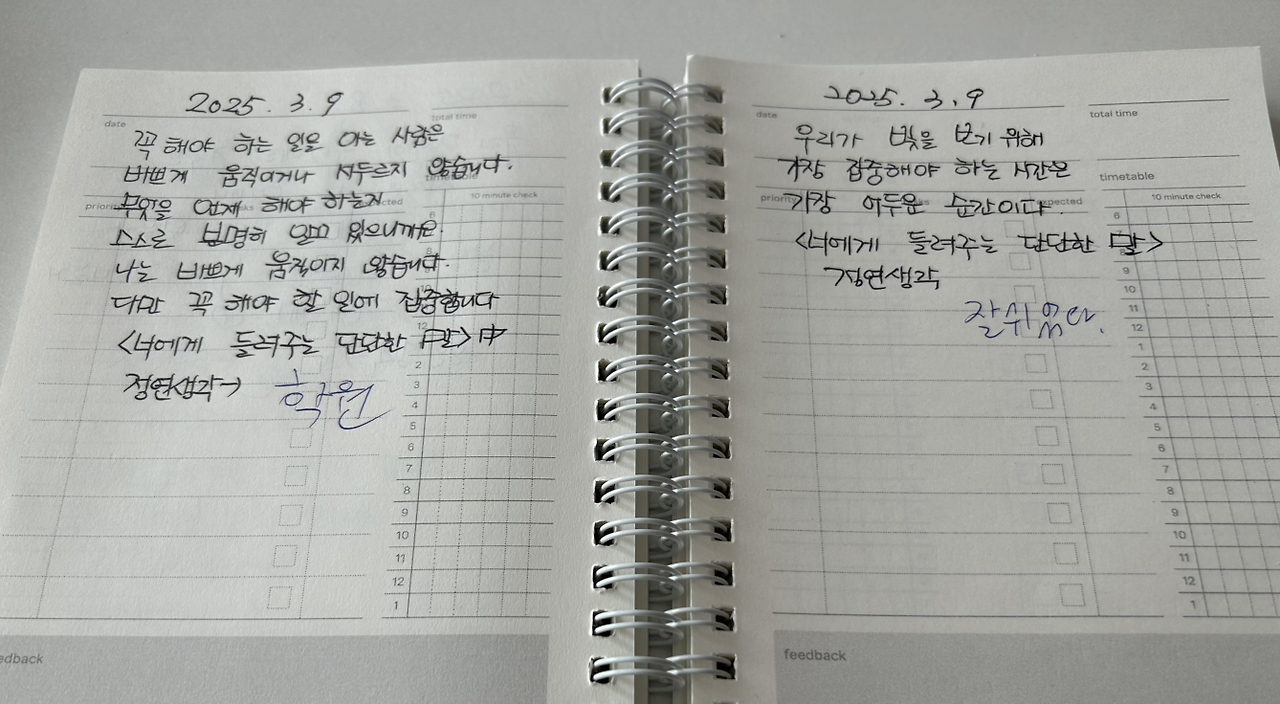 2025. 3. 9
date
total time
꼭 해야 하는 일을 아는 사람은
바쁘게 움직이거나 서두르지 않습니다.
timetable
무엇을 언제 해야 하는지
priority
expected
10 minute check
스스로 분명히 알고 있으니까요.
나는 바쁘게 움직이지 않습니다.
다만 꼭 해야 할 일에 집중합니다
<너에게 들려주는 단단한 말> 中
정연생각→ 학원
6
8
12
2
3
4
5
6
7
8
9
10
11
12
1
feedback
2025. 3. 9
date
total time
우리가 빛을 보기 위해
가장 집중해야 하는 시간은
timetable
가장 어두운 순간이다.
priority
expected
10 minute check
<너에게 들려주는 단단한 말>
정연생각
잘쉬었다.
6
9
10
11
12
1
2
3
4
5
6
7
8
9
10
11
12
1
feedback